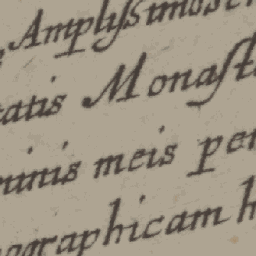 Amplissimos
tatis Monast
rinis meis per
ographicam h